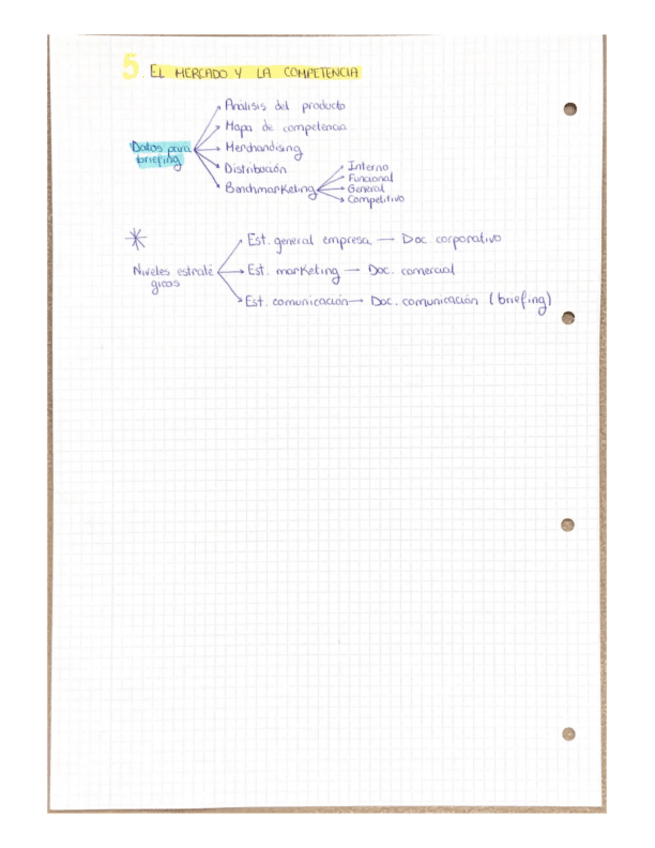 5. EL MERCADO Y LA COMPETENCIA
Datos para briefing
Análisis del producto
Mapa de competencia
Merchandising
Distribución
Benchmarketing
Interno
Funcional
General
Competitivo
*
Niveles estratégicos
Est. general empresa — Doc. corporativo
Est. marketing — Doc. comercial
Est. comunicación — Doc. comunicación (briefing)